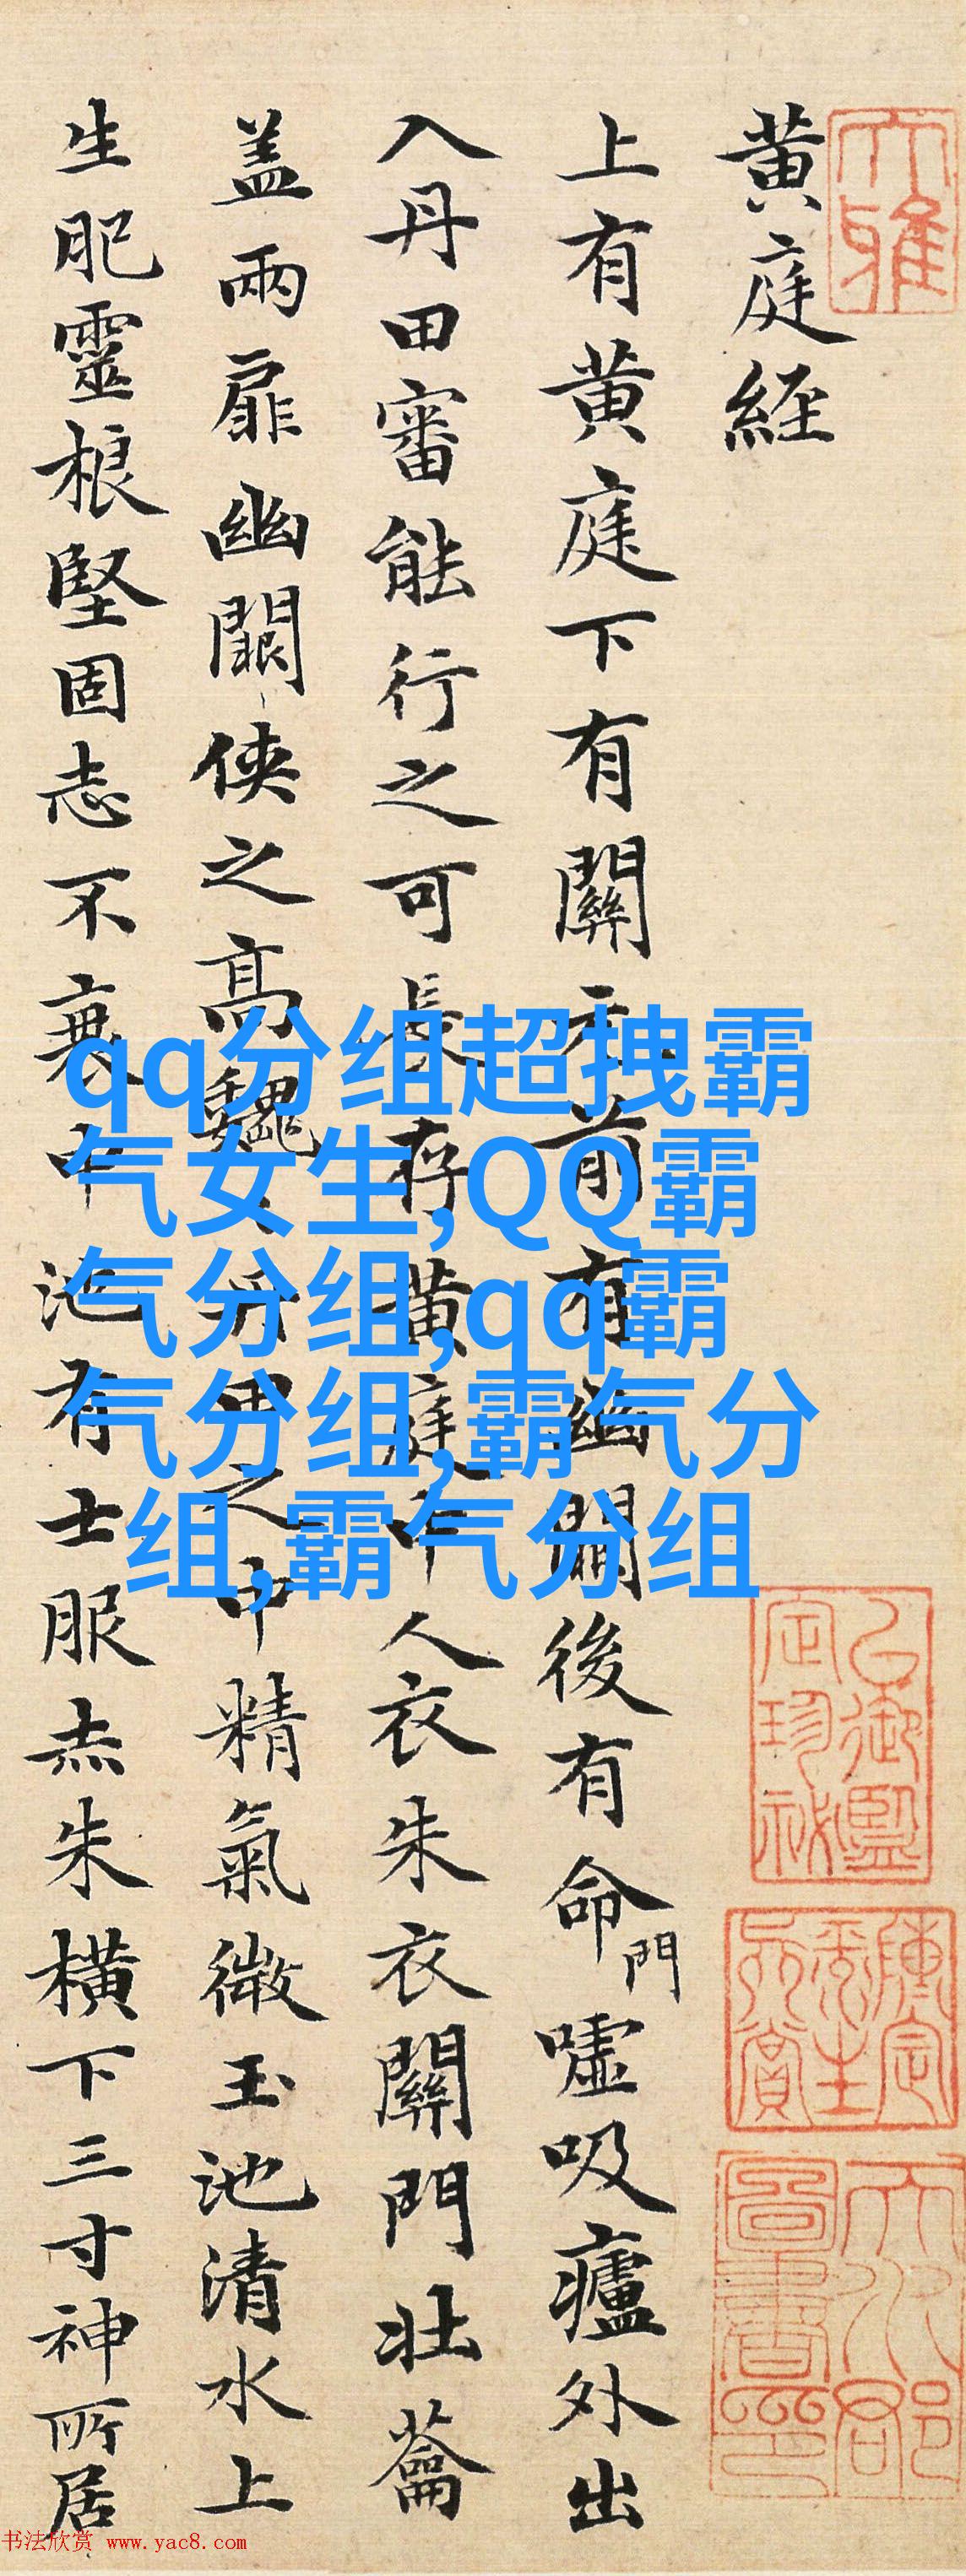 大雅
黄庭経
上有黄庭下有關元前有幽闕後有命門嘘吸廬外出
入丹田審能行之可長存黄庭中人衣朱衣關門壯蘥
盖兩扉幽闕俠之高魏丹田之中精氣微玉池清水上
生肥靈根堅固志不衰中池有士服赤朱横下三寸神所居
qq分组超拽霸
气女生,QQ霸
气分组,qq霸
气分组,霸气分
组,霸气分组
书法欣赏 www.yac8.com